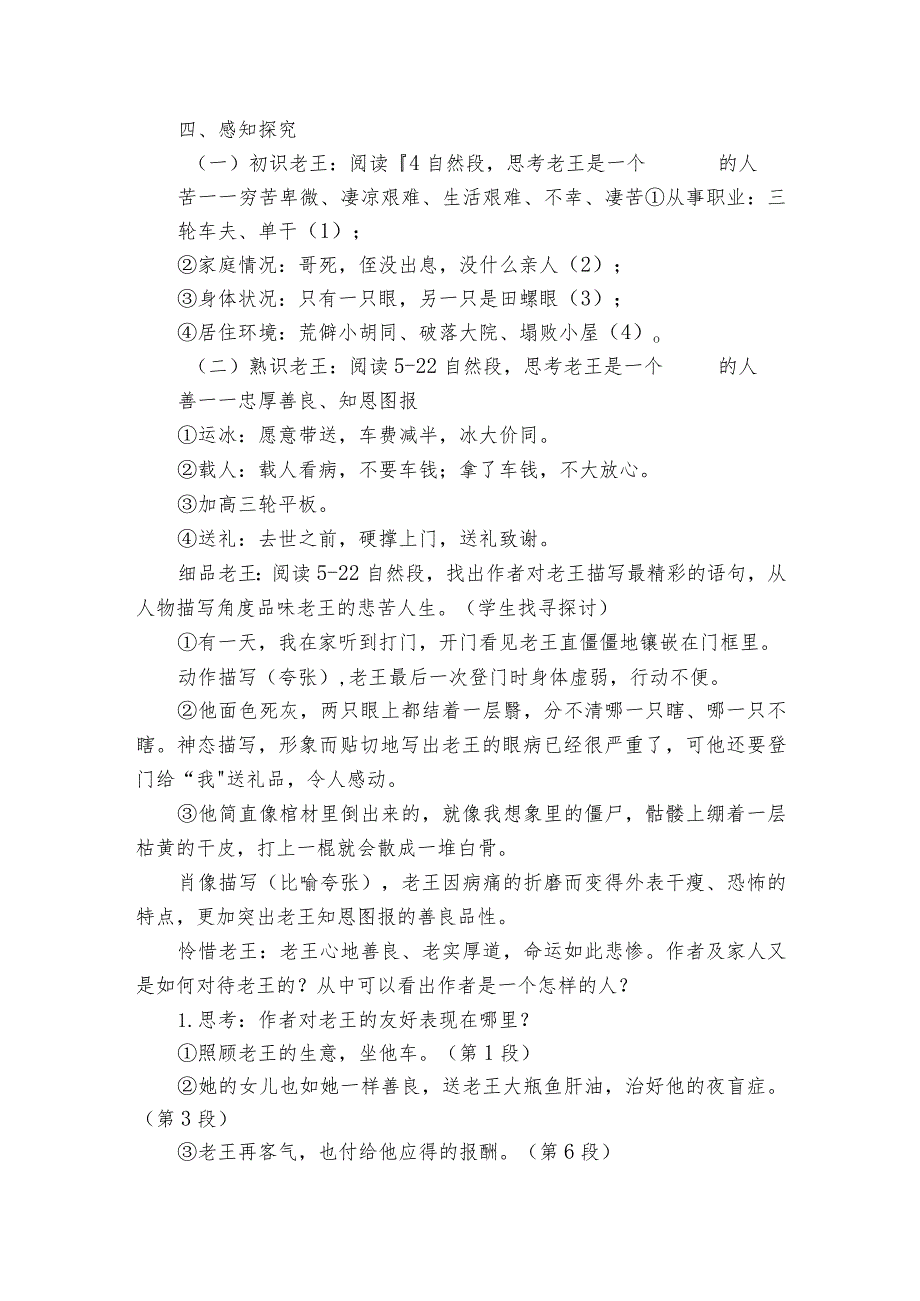 四、感知探究
（一）初识老王：阅读『4自然段，思考老王是一个 的人
苦一一穷苦卑微、凄凉艰难、生活艰难、不幸、凄苦①从事职业：三
轮车夫、单干（1）；
②家庭情况：哥死，侄没出息，没什么亲人（2）；
③身体状况：只有一只眼，另一只是田螺眼（3）；
④居住环境：荒僻小胡同、破落大院、塌败小屋（4）。
（二）熟识老王：阅读5-22自然段，思考老王是一个 的人
善一一忠厚善良、知恩图报
①运冰：愿意带送，车费减半，冰大价同。
②载人：载人看病，不要车钱；拿了车钱，不大放心。
③加高三轮平板。
④送礼：去世之前，硬撑上门，送礼致谢。
细品老王：阅读5-22自然段，找出作者对老王描写最精彩的语句，从
人物描写角度品味老王的悲苦人生。（学生找寻探讨）
①有一天，我在家听到打门，开门看见老王直僵僵地镶嵌在门框里。
动作描写（夸张）,老王最后一次登门时身体虚弱，行动不便。
②他面色死灰，两只眼上都结着一层翳，分不清哪一只瞎、哪一只不
瞎。神态描写，形象而贴切地写出老王的眼病已经很严重了，可他还要登
门给“我"送礼品，令人感动。
③他简直像棺材里倒出来的，就像我想象里的僵尸，骷髅上绷着一层
枯黄的干皮，打上一棍就会散成一堆白骨。
肖像描写（比喻夸张），老王因病痛的折磨而变得外表干瘦、恐怖的
特点，更加突出老王知恩图报的善良品性。
怜惜老王：老王心地善良、老实厚道，命运如此悲惨。作者及家人又
是如何对待老王的？从中可以看出作者是一个怎样的人？
1.思考：作者对老王的友好表现在哪里？
①照顾老王的生意，坐他车。（第1段）
②她的女儿也如她一样善良，送老王大瓶鱼肝油，治好他的夜盲症。
（第3段）
③老王再客气，也付给他应得的报酬。（第6段）